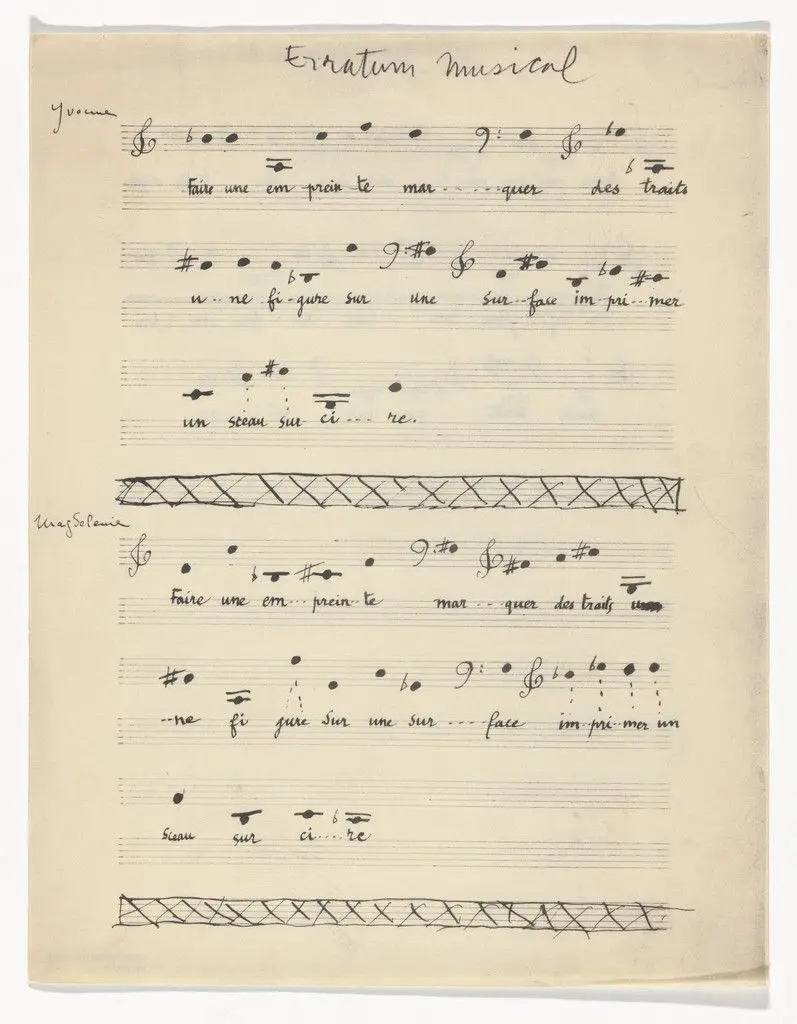 Erratum Musical
Yvonne
Faire une em prein te mar - - - - - quer des traits
u - - ne fi - gure sur une sur - - face im - pri - - mer
un sceau sur ci - - - - re.
Magdeleine
Faire une em - - prein - te mar - - - quer des traits
- - ne fi gure sur une sur - - - - face im - pri - mer un
sceau sur ci - - - - re